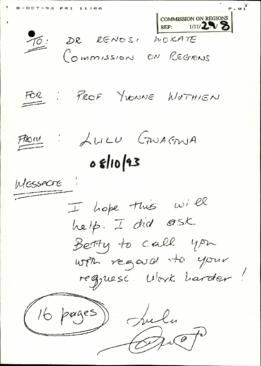 8-OCT-93 FRI 11:06 P.01
COMMISSION ON REGIONS
REF: 1/11/29/8
TO: DR RENOSI MOKATE
COMMISSION ON REGIONS
FOR: PROF YVONNE MUTHIEN
FROM: LULU GWAGWA
08/10/93
MESSAGE:
I hope this will
help. I did ask
Betty to call you
with regard to your
request. Work harder!
16 pages
Lulu